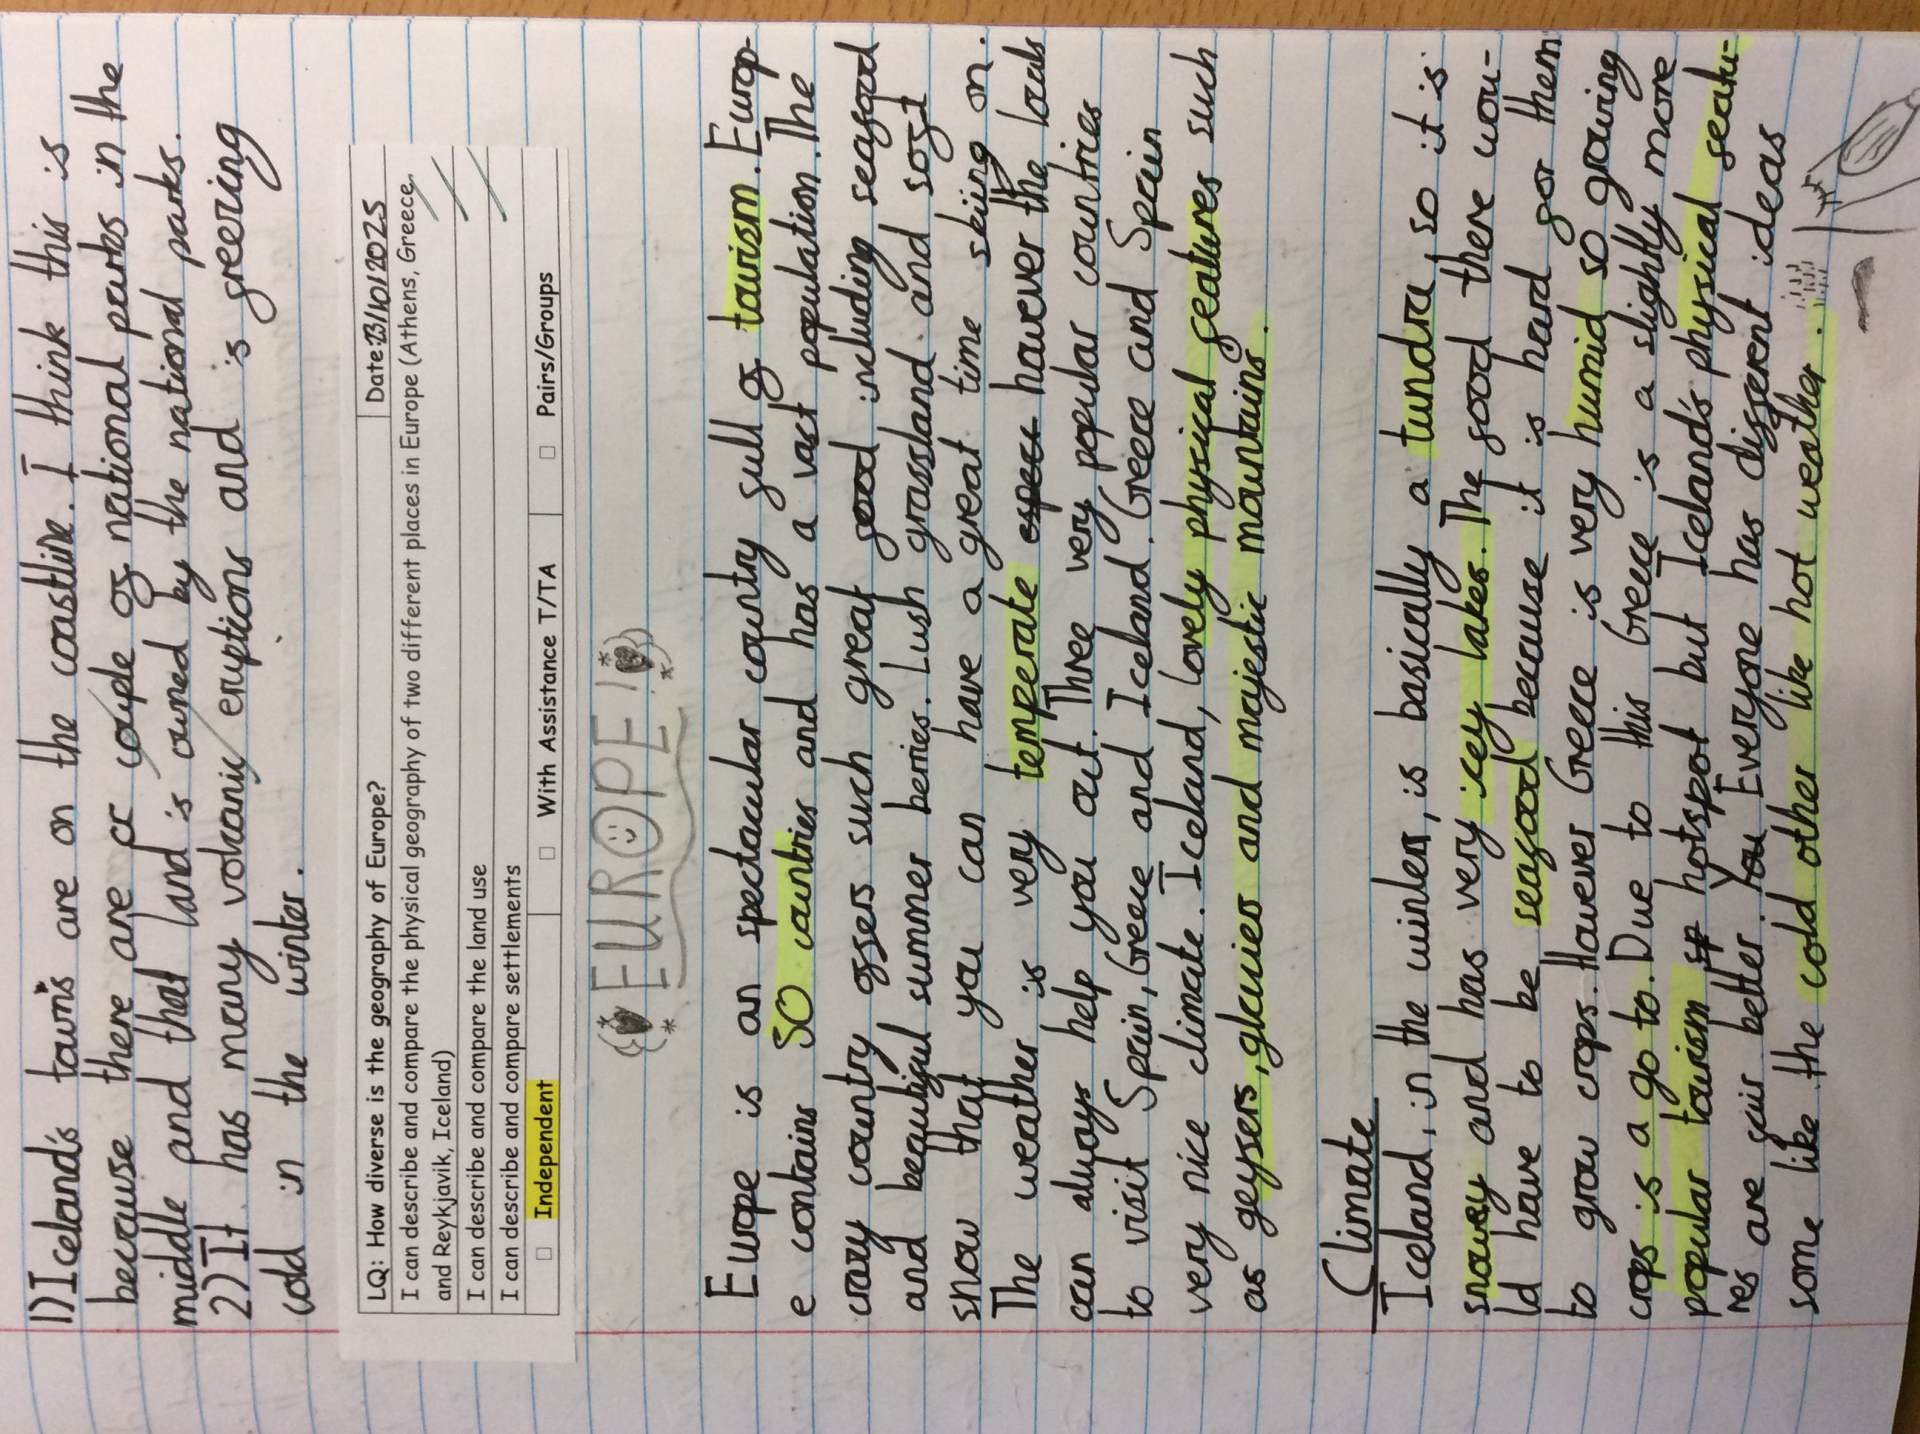 1) Iceland's towns are on the coastline. I think this is
because there are a couple of national parks in the
middle and that land is owned by the national parks.
2) It has many volcanic eruptions and is freering
cold in the winter.
LQ: How diverse is the geography of Europe?
Date: 23/10/2025
I can describe and compare the physical geography of two different places in Europe (Athens, Greece,
and Reykjavik, Iceland)
I can describe and compare the land use
I can describe and compare settlements
Independent
With Assistance T/TA
Pairs/Groups
EUROPE!
Europe is an spectacular country full of tourism. Europ-
e contains 50 countries and has a vast population. The
crazy country offers such great food including seafood
and beautiful summer berries. Lush grassland and soft
snow that you can have a great time skiing on.
The weather is very temperate however the locals
can always help you out. Three very popular countries
to visit Spain, Greece and Iceland. Greece and Spain
very nice climate. Iceland, lovely physical features such
as geysers, glaciers and majestic mountains.
Climate
Iceland, in the winter, is basically a tundra so it is
snowy and has very icey lakes. The food there wou-
ld have to be seafood because it is hard for them
to grow crops. However Greece is very humid so growing
crops is a go to. Due to this Greece is a slightly more
popular tourism hotspot but Iceland's physical featu-
res are fair better. Everyone has different ideas
some like the cold other like hot weather.